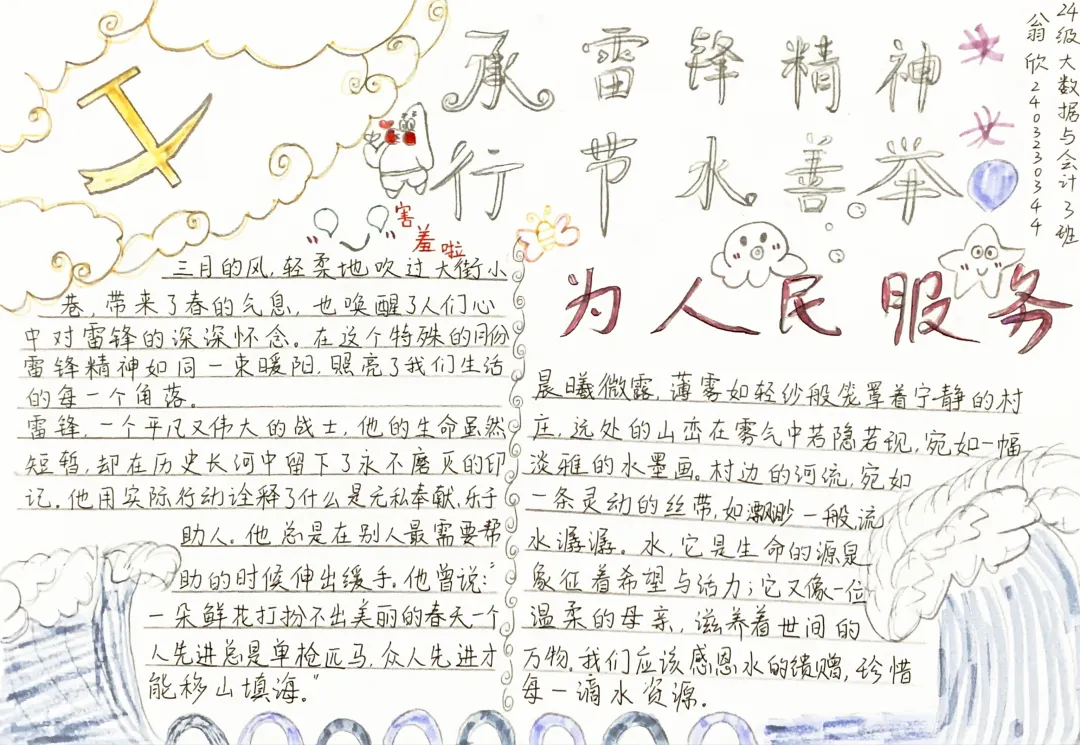 承雷锋精神
行节水善举
为人民服务
24级大数据与会计3班
翁欣2403230344
害羞啦
三月的风,轻柔地吹过大街小
巷,带来了春的气息,也唤醒了人们心
中对雷锋的深深怀念。在这个特殊的月份
雷锋精神如同一束暖阳,照亮了我们生活
的每一个角落。
雷锋,一个平凡又伟大的战士,他的生命虽然
短暂,却在历史长河中留下了永不磨灭的印
记。他用实际行动诠释了什么是无私奉献,乐于
助人。他总是在别人最需要帮
助的时候伸出缓手。他曾说:“
一朵鲜花打扮不出美丽的春天一个
人先进总是单枪匹马,众人先进才
能移山填海。”
晨曦微露,薄雾如轻纱般笼罩着宁静的村
庄,远处的山峦在雾气中若隐若现,宛如一幅
淡雅的水墨画。村边的河流,宛如
一条灵动的丝带,如飘渺一般,流
水潺潺。水,它是生命的源泉
象征着希望与活力;它又像一位
温柔的母亲,滋养着世间的
万物。我们应该感恩水的馈赠,珍惜
每一滴水资源。